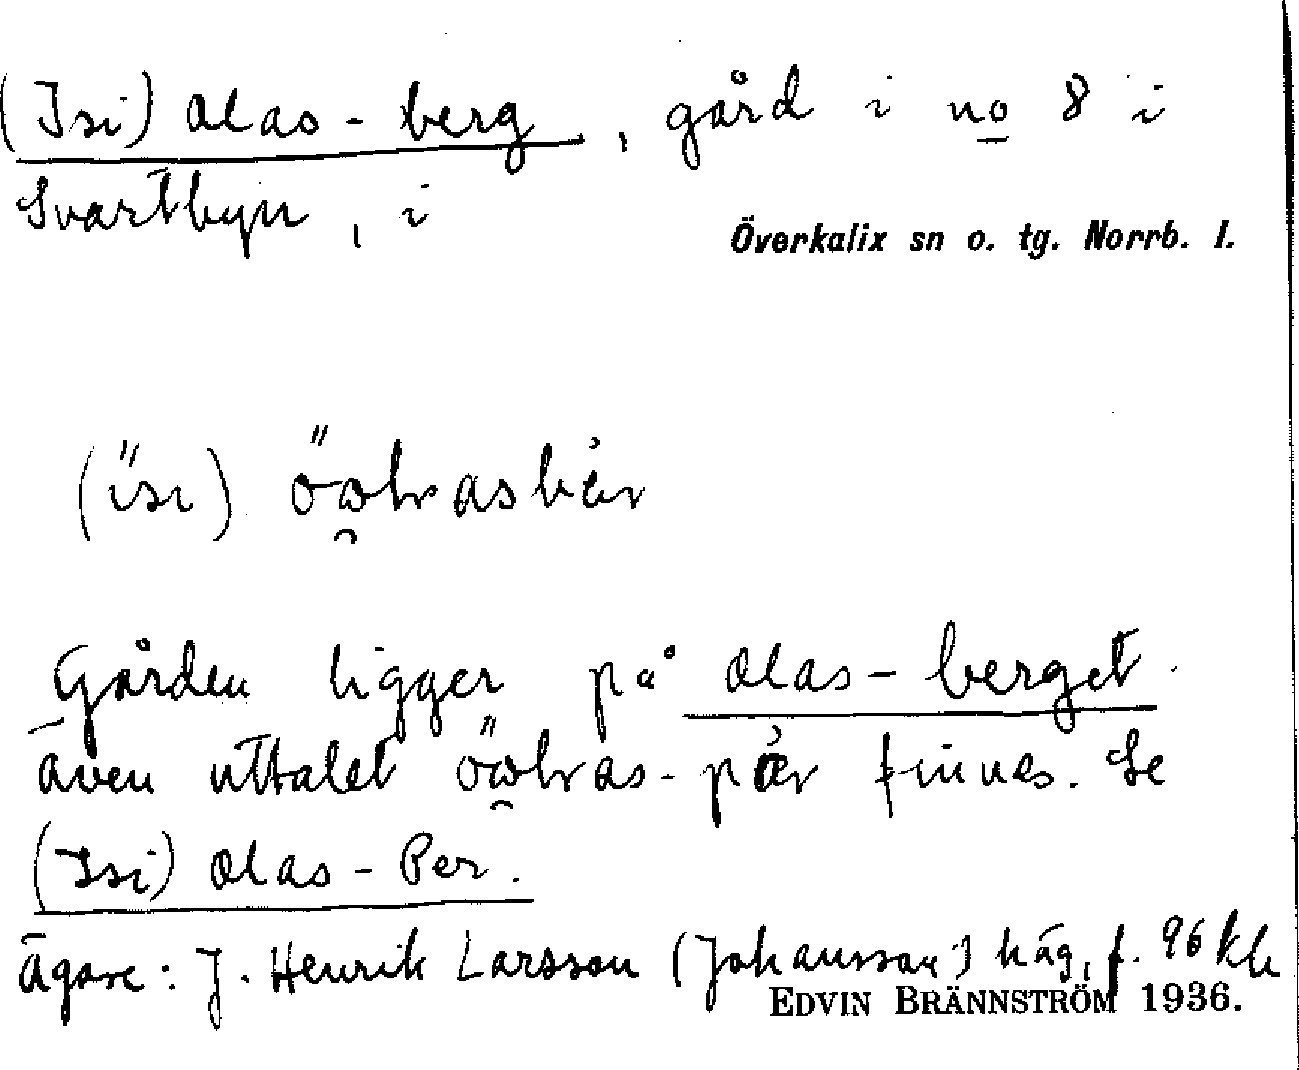 (Isi) Olas-berg, gård i no 8 i
Svartbyn, i
Överkalix sn o. tg. Norrb. l.
(ısı)
Gården ligger på Olas-berget.
även uttalet finnes. Se
(Isi) Olas-Per.
Ägare: J. Henrik Larsson (Johansson) häg, f. 96
EDVIN BRÄNNSTRÖM 1936.